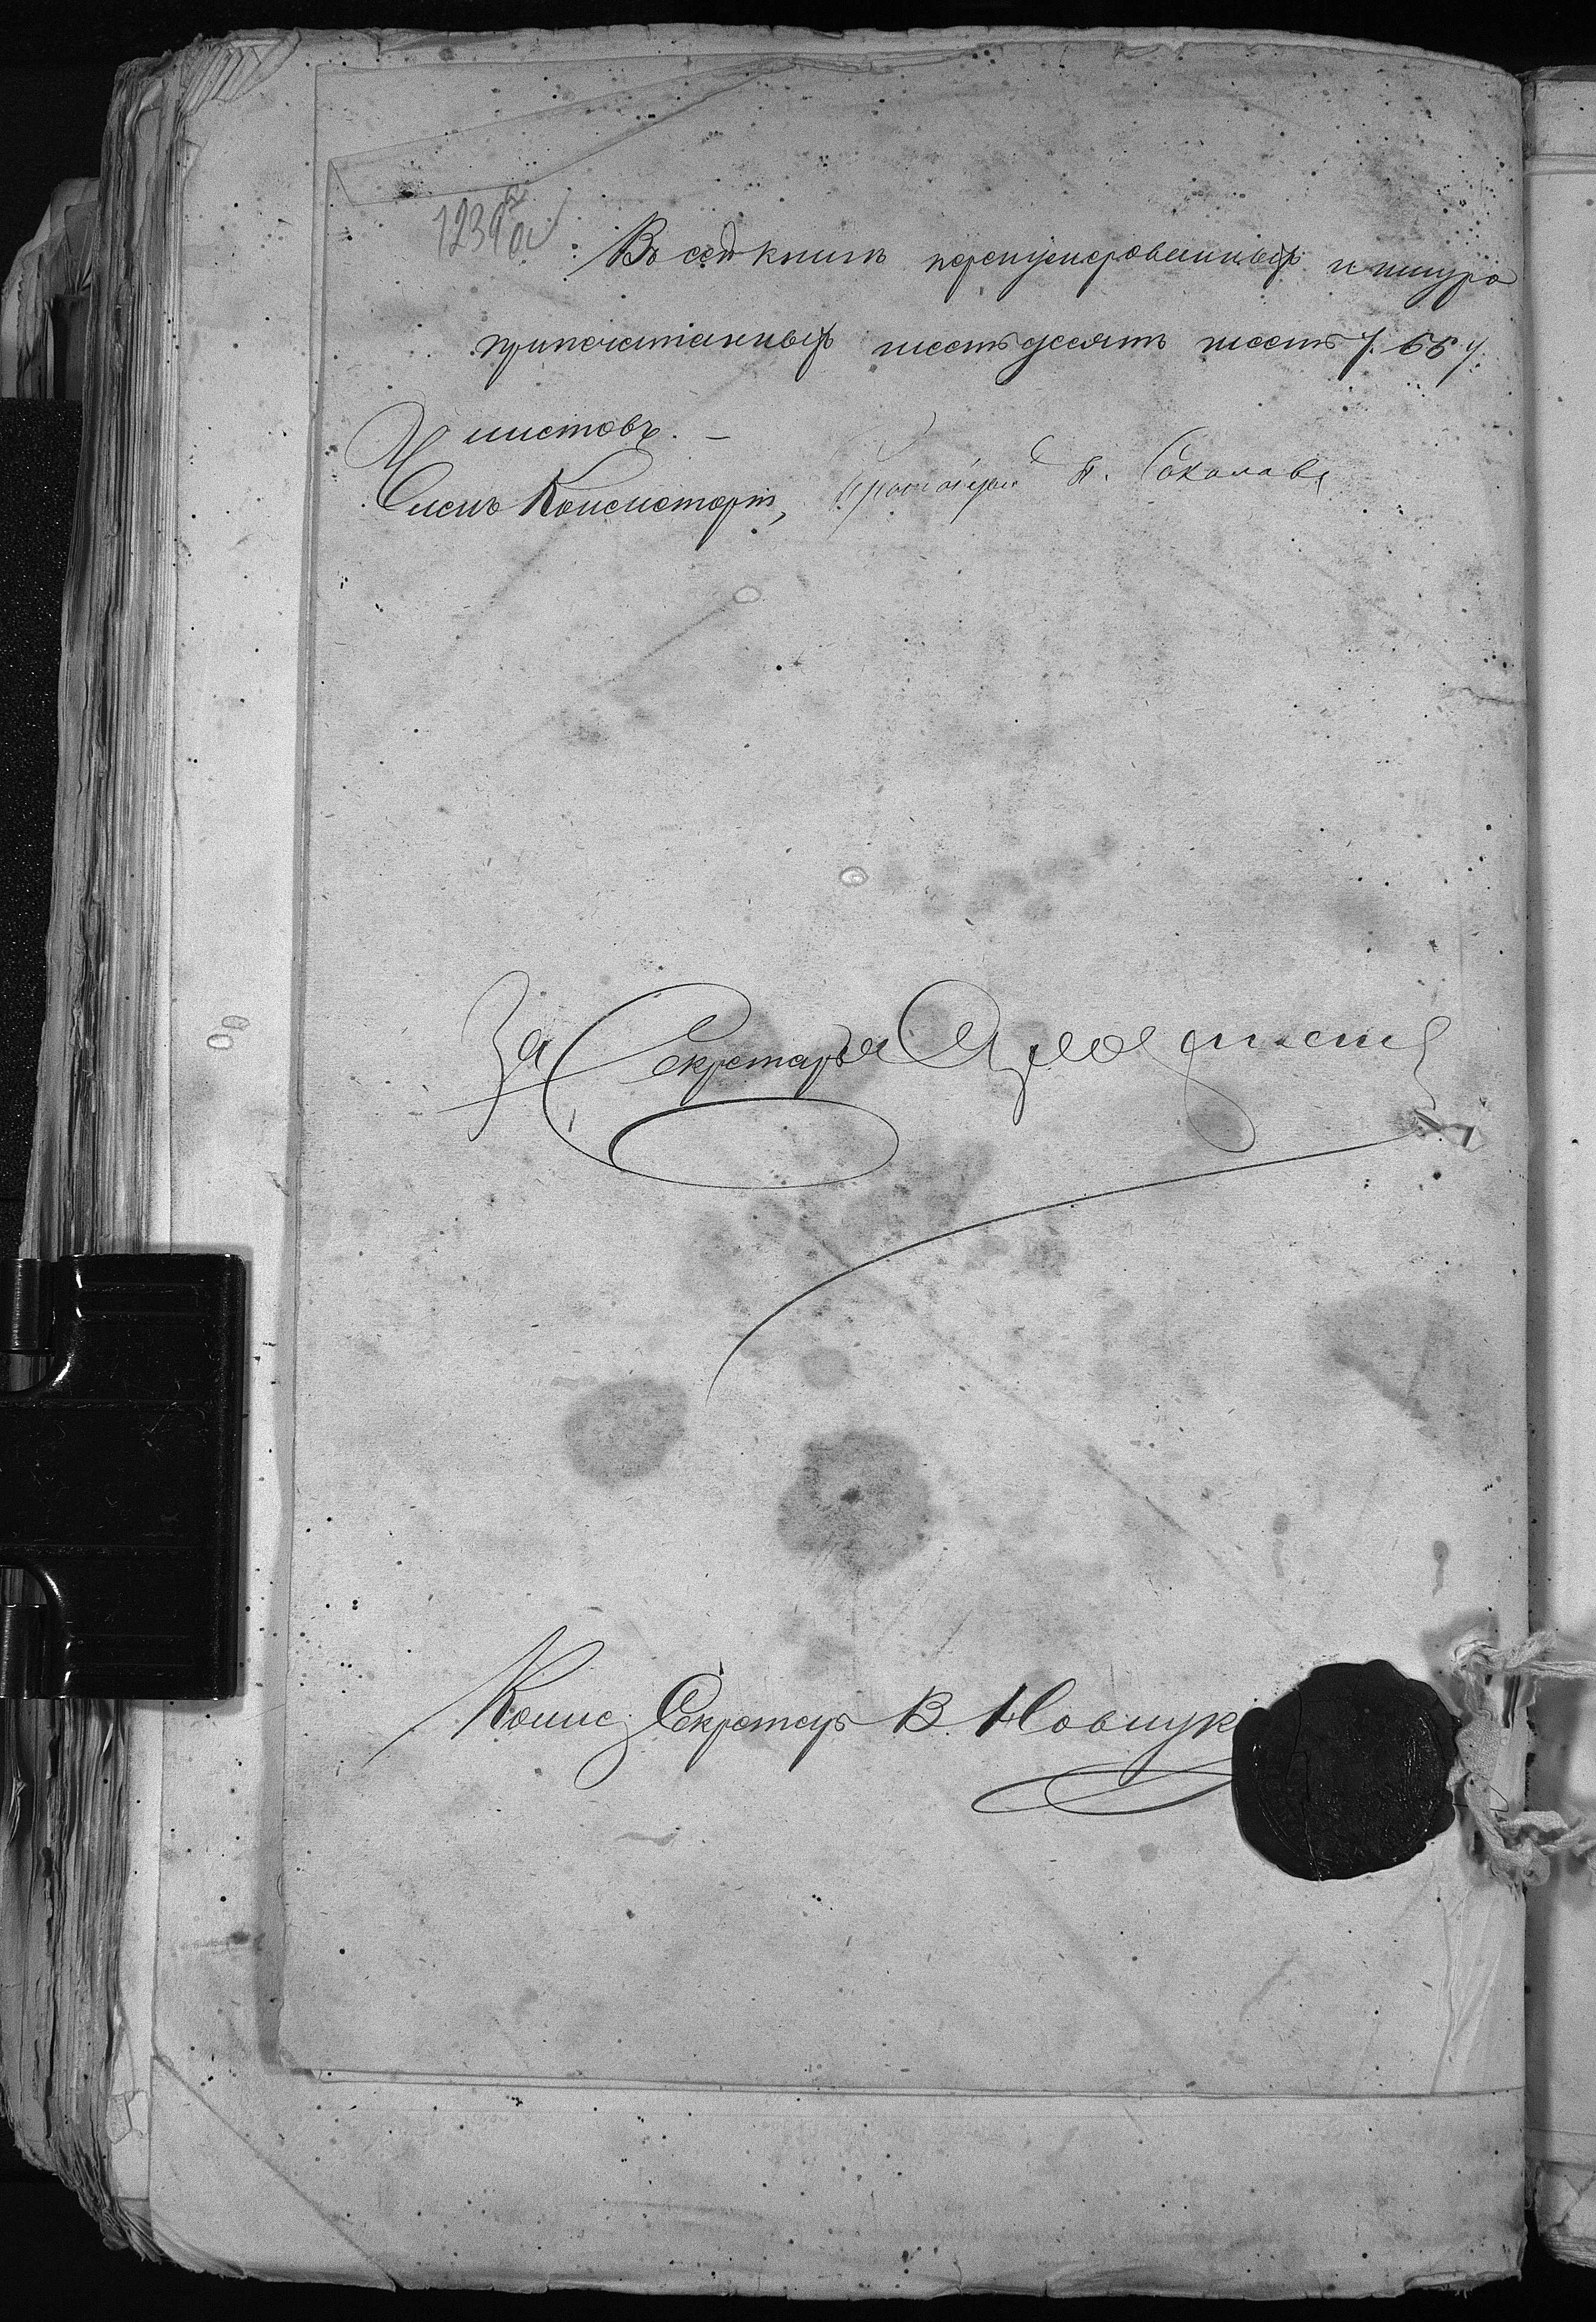 1239 об
Въ сей книгѣ перенумерованныхъ и шнуро
припечатанныхъ шестьдесятъ шесть /. 66 ./
листовъ. —
Членъ Консисторіи, Протоіерей П. Соколовъ
За Секретаря
Коллеж. Секретарь В. Новицк